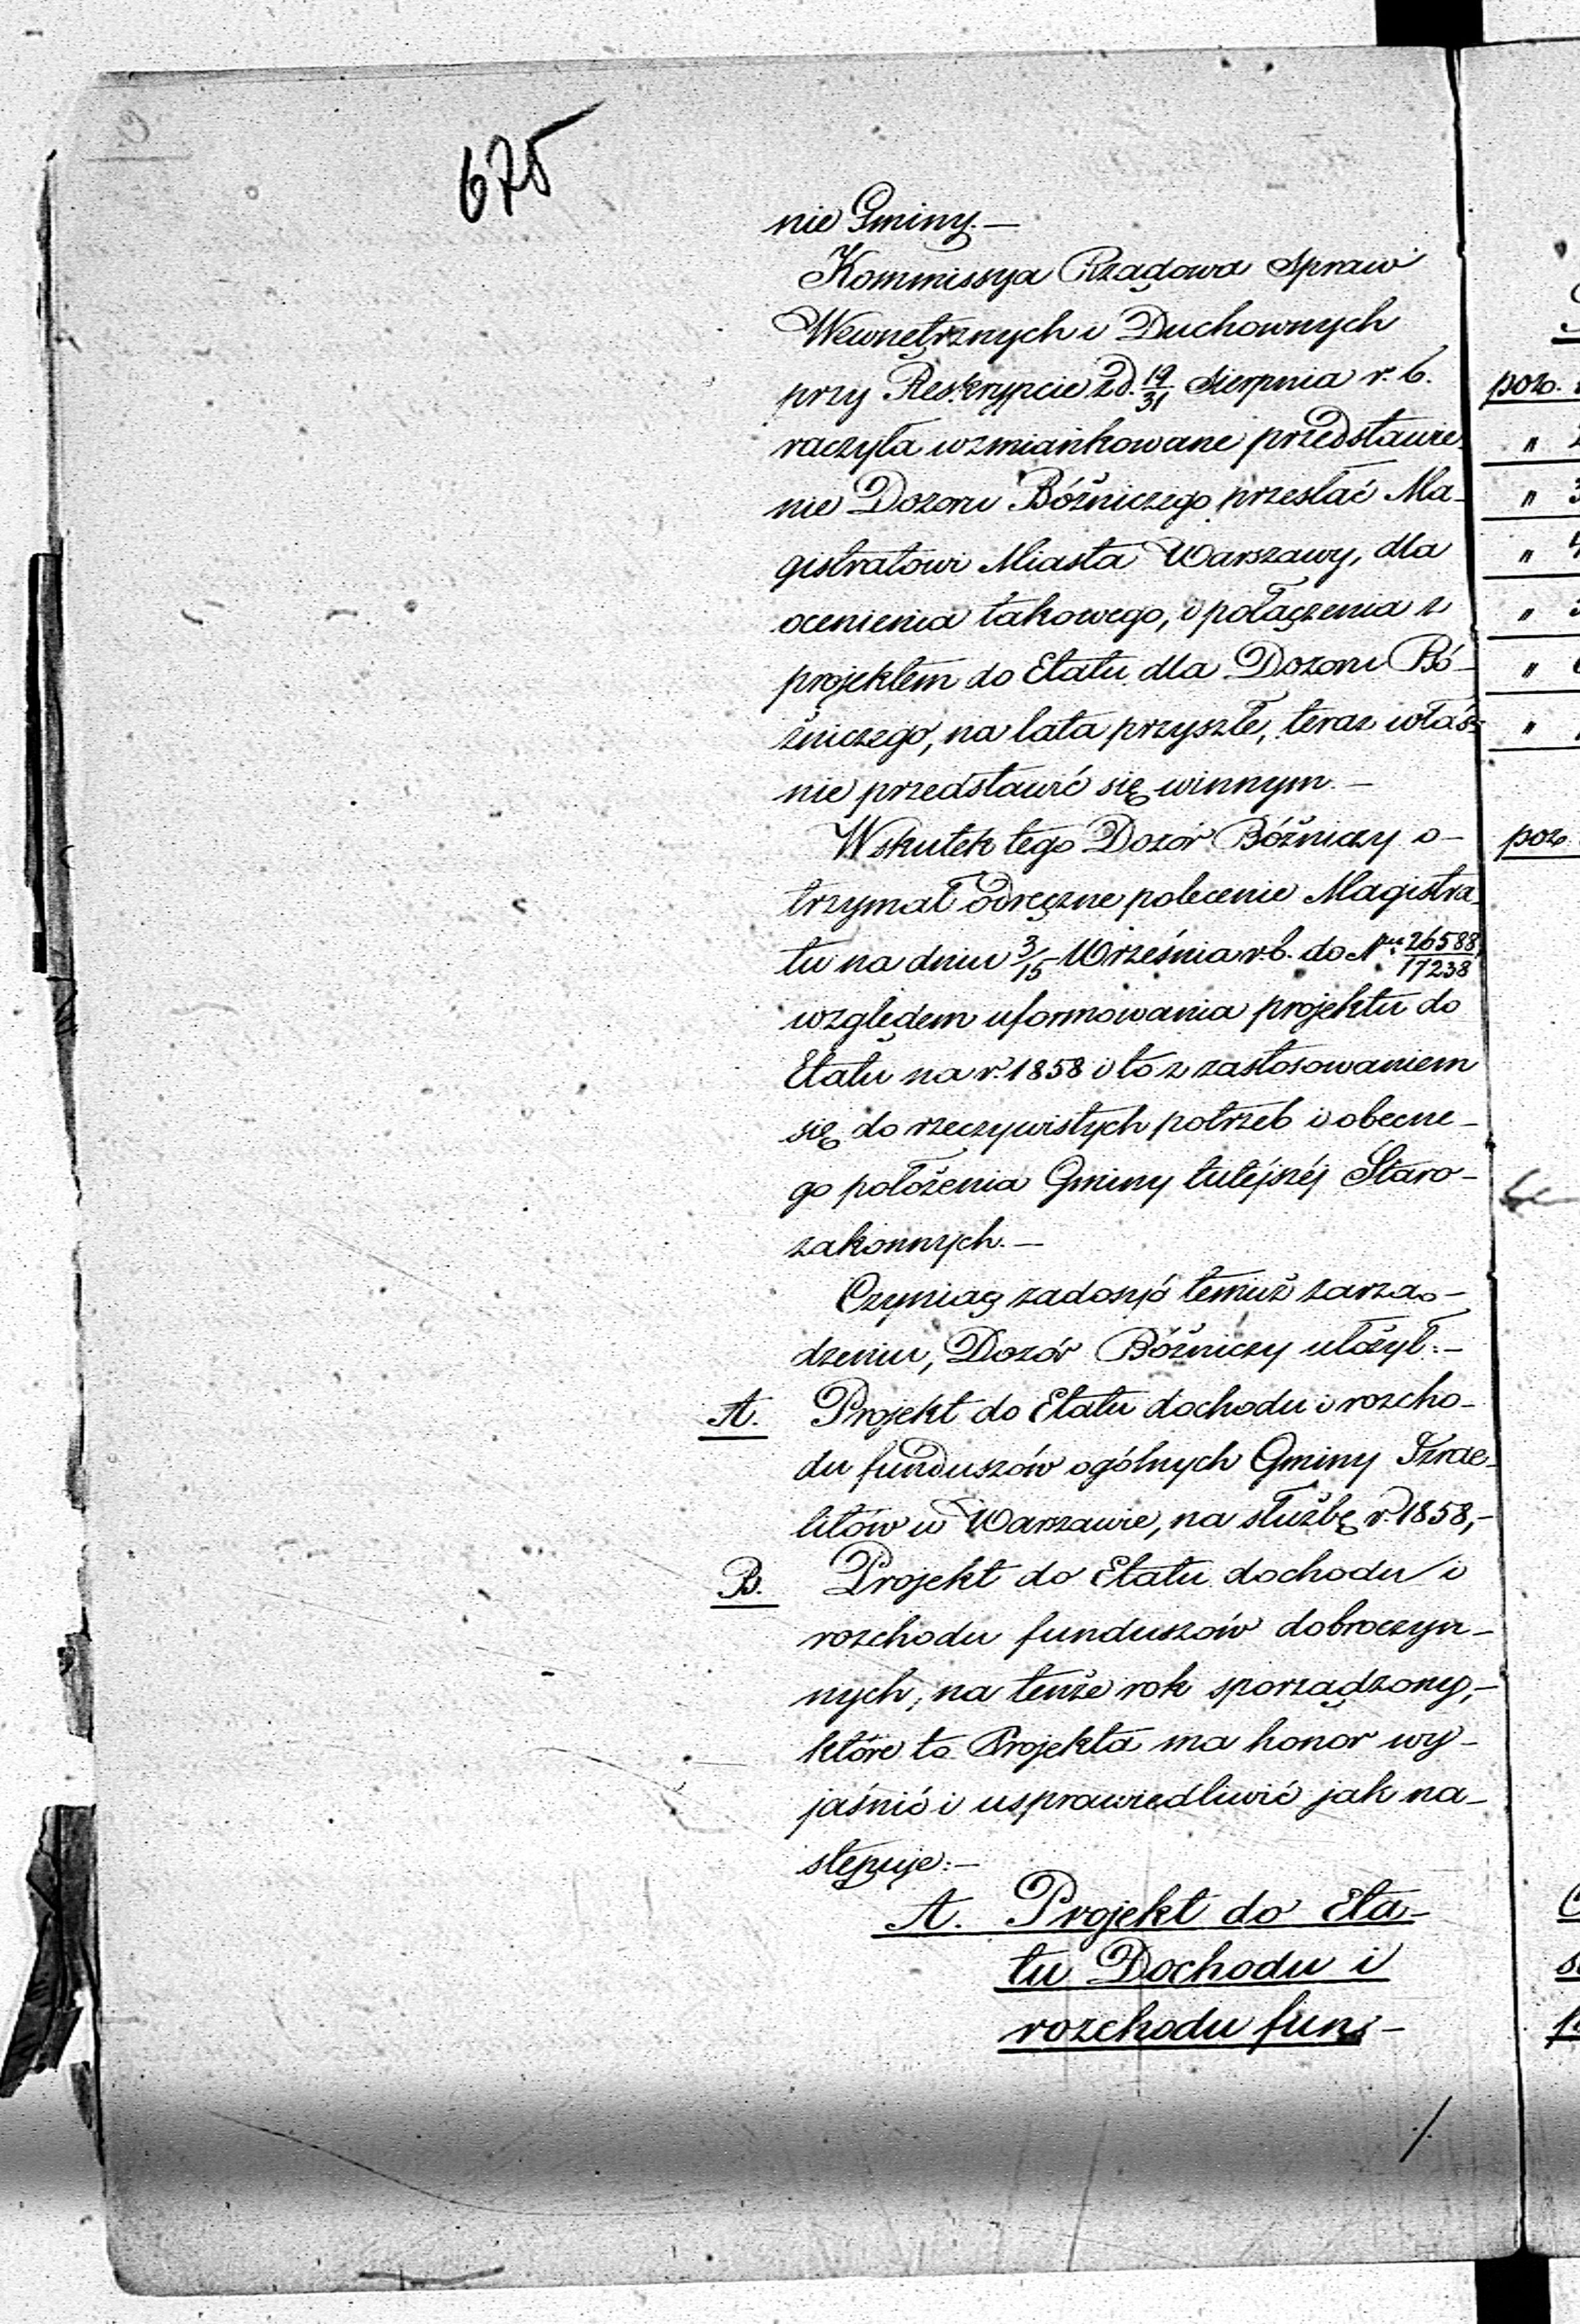 675
nie Gminy.—
Kommissya Rządowa Spraw
Wewnętrznych i Duchownych
przy Reskrypcie z d. 19/31 Sierpnia r. b.
raczyła wzmiankowane przedstawie
nie Dozoru Bóżniczego przesłać Ma-
gistratowi Miasta Warszawy, dla
ocenienia takowego, i połączenia z
projektem do Etatu dla Dozoru Bó-
żniczego, na lata przyszłe, teraz właś-
nie przedstawić się winnym.—
Wskutek tego Dozór Bóżniczy o-
trzymał odręczne polecenie Magistra-
tu na dniu 3/15 Września r. b. do Nru 26588/17238
względem uformowania projektu do
Etatu na r. 1858 i to z zastosowaniem
się do rzeczywistych potrzeb i obecne-
go położenia Gminy tutéjszéj Staro-
zakonnych.—
Czyniąc zadosyć temuż zarzą-
dzeniu, Dozór Bóżniczy ułożył:—
A. Projekt do Etatu dochodu i rozcho-
du funduszów ogólnych Gminy Izrae-
litów w Warszawie, na służbę r. 1858,—
B. Projekt do Etatu dochodu i
rozchodu funduszów dobroczyn-
nych, na tenże rok sporządzony,—
które to Projekta ma honor wy-
jaśnić i usprawiedliwić jak na-
stępuje:—
A. Projekt do Eta-
tu Dochodu i
rozchodu fun-
poz.
" 2
" 3
" 4
"
"
"
poz.